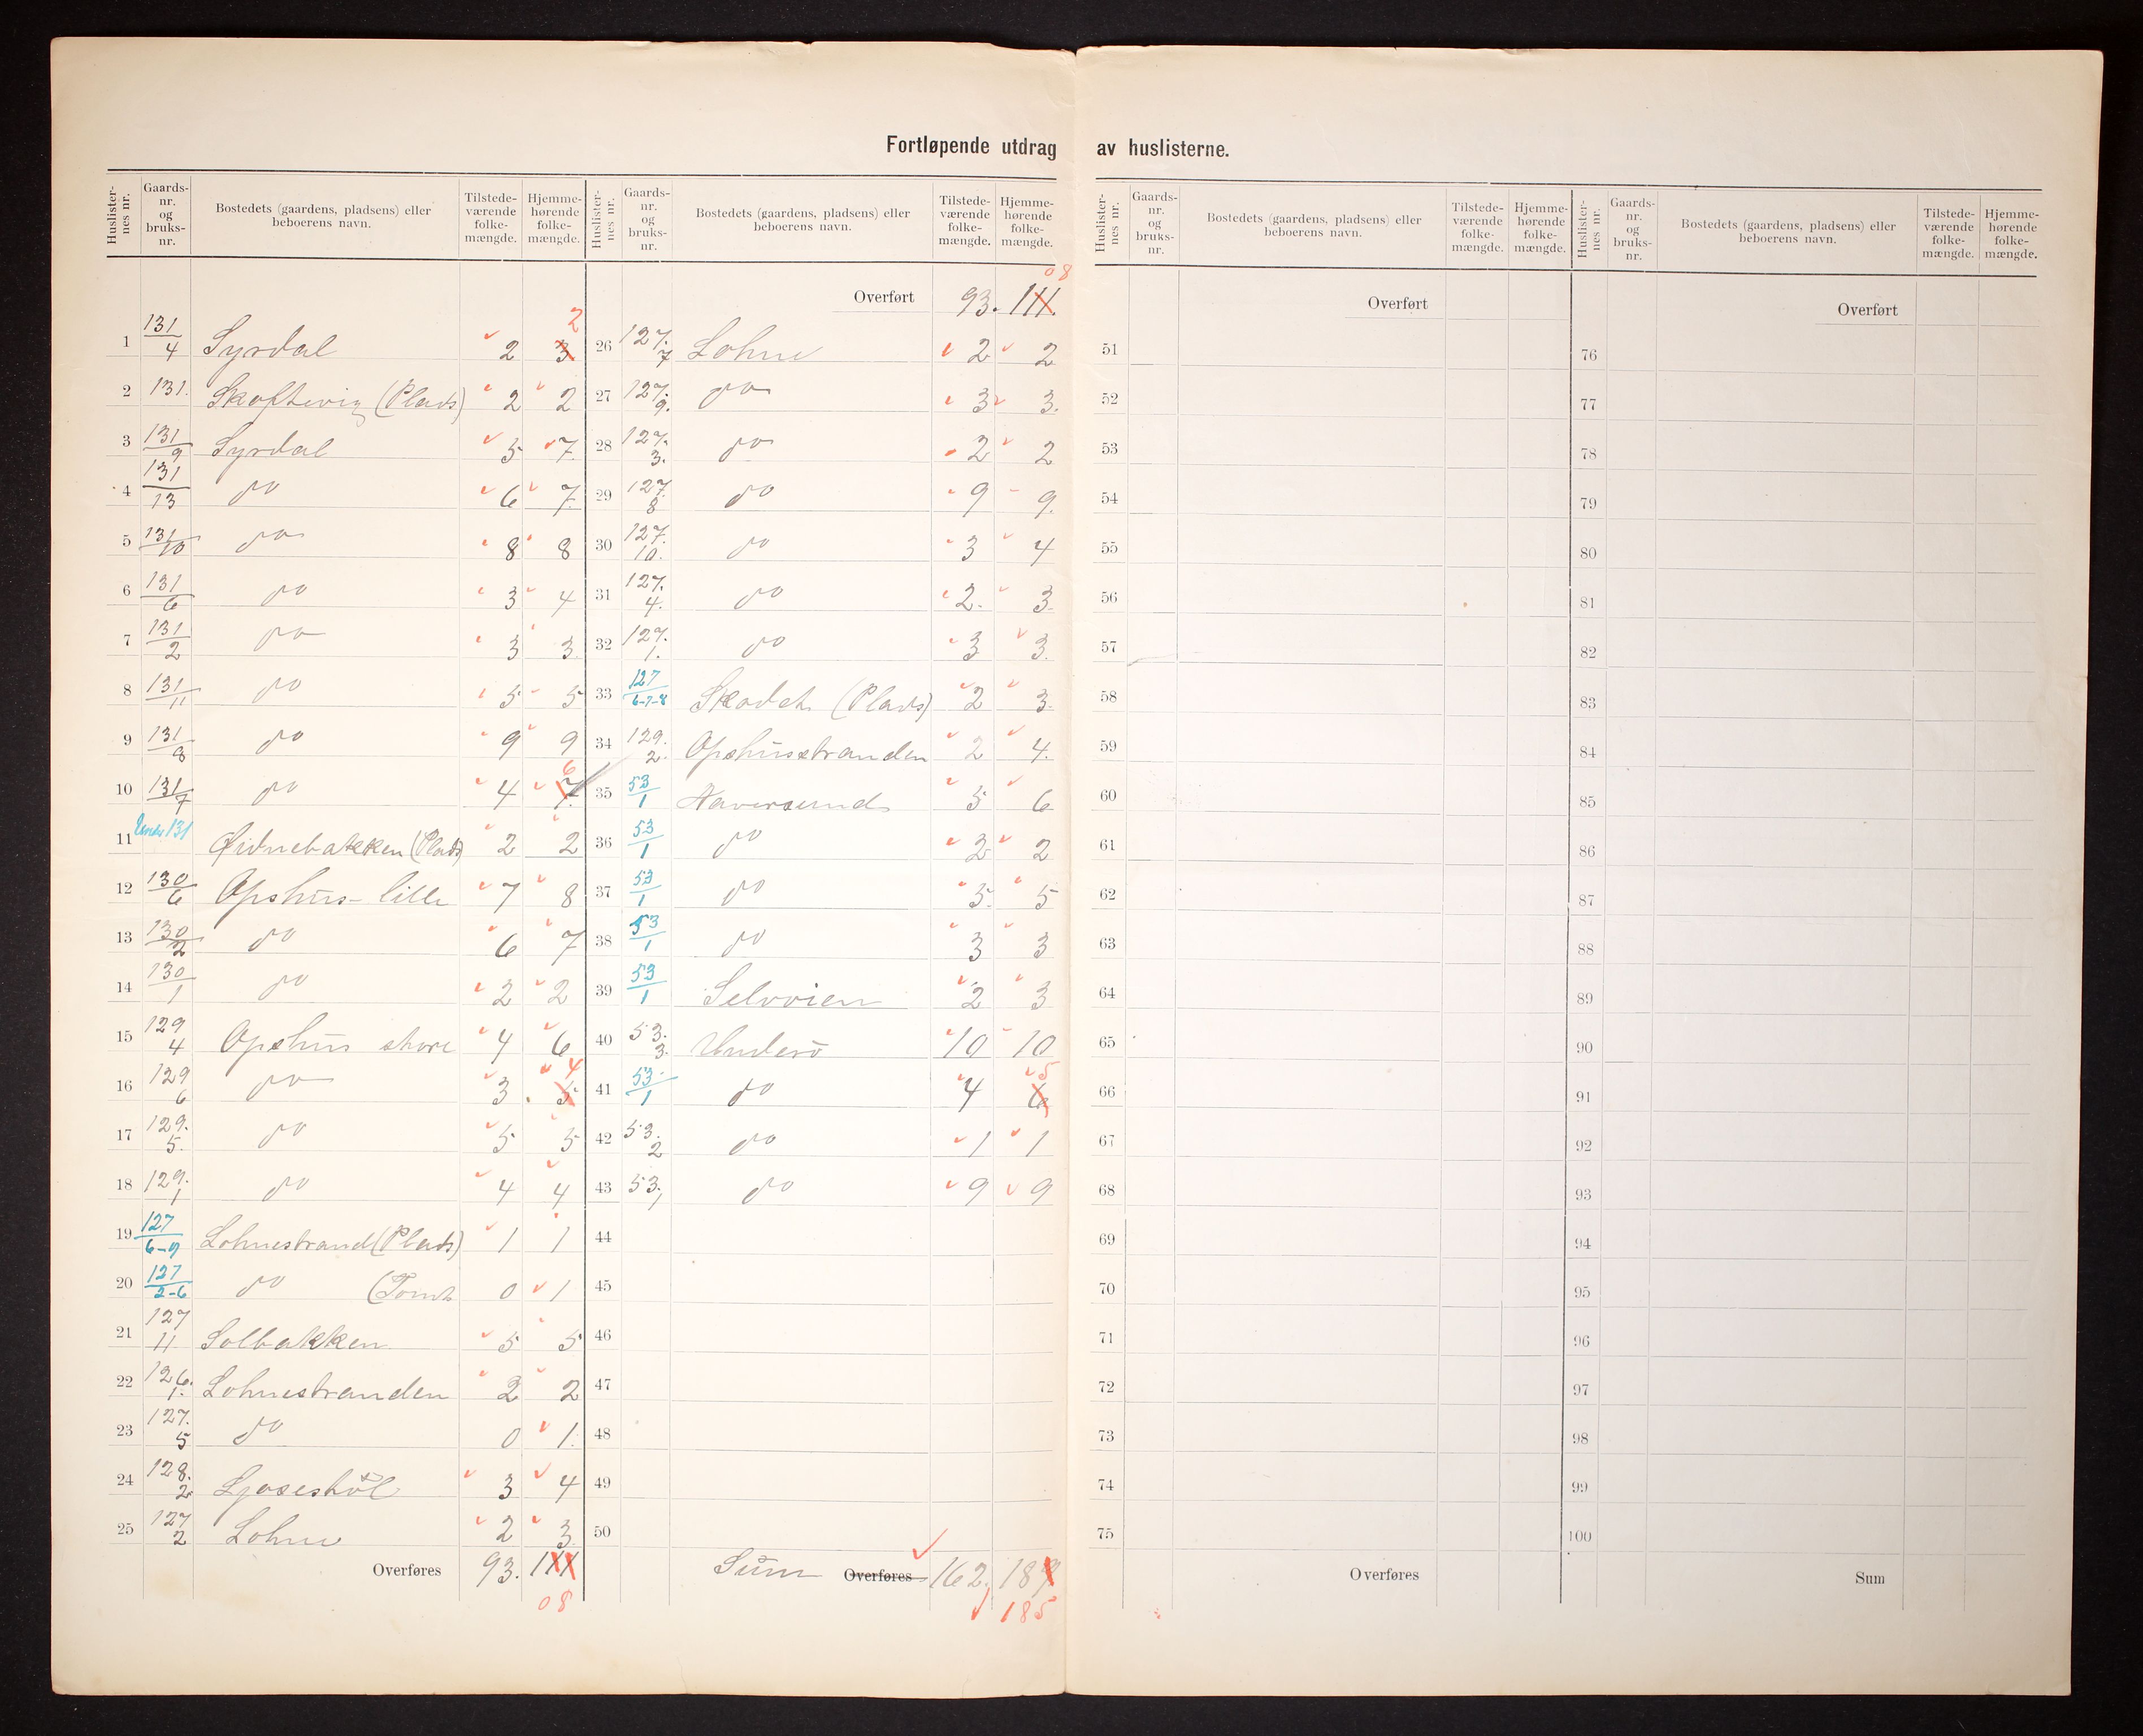 Fortløpende utdrag av huslisterne.
Huslister-nes nr. Gaards-nr. og bruks-nr. Bostedets (gaardens, pladsens) eller beboerens navn. Tilstede-værende folke-mængde. Hjemme-hørende folke-mængde.
1 131/4 Syrdal 2 3 2
2 131. Skoftevig (Plads) 2 2
3 131/9 Syrdal 5 7
4 131/13 do 6 7
5 131/10 do 8 8
6 131/6 do 3 4
7 131/2 do 3 3
8 131/11 do 5 5
9 131/8 do 9 9
10 131/7 do 4 7 6
11 Under 131 Øidnebakken (Plads) 2 2
12 130/6 Opshus lille 7 8
13 130/2 do 6 7
14 130/1 do 2 2
15 129/4 Opshus store 4 6
16 129/6 do 3 5 4
17 129/5 do 5 5
18 129/1 do 4 4
19 127/6-9 Lohnestrand (Plads) 1 1
20 127/2-6 do (Tomt 0 1
21 127/11 Solbakken 5 5
22 126/1 Lohnestranden 2 2
23 127/5 do 0 1
24 128/2 3 4
25 127/2 Lohne 2 3
Overføres 93. 111 08
Huslister-nes nr. Gaards-nr. og bruks-nr. Bostedets (gaardens, pladsens) eller beboerens navn. Tilstede-værende folke-mængde. Hjemme-hørende folke-mængde.
Overført 93. 111. 08
26 127/7 Lohne 2 2
27 127/9 do 3 3
28 127/3 do 2 2
29 127/8 do 9 9
30 127/10 do 3 4
31 127/4 do 2 3
32 127/1 do 3 3
33 127/6-7-8 (Plads) 2 3
34 129/2 Opshusstranden 2 4
35 53/1 Haversund 5 6
36 53/1 do 2 2
37 53/1 do 5 5
38 53/1 do 3 3
39 53/1 Selvvien 2 3
40 53/3 Underø 10 10
41 53/1 do 4 6 5
42 53/2 do 1 1
43 53/1 do 9 9
44
45
46
47
48
49
50
Sum Overføres 162 187 185
Huslister-nes nr. Gaards-nr. og bruks-nr. Bostedets (gaardens, pladsens) eller beboerens navn. Tilstede-værende folke-mængde. Hjemme-hørende folke-mængde.
Overført
51
52
53
54
55
56
57
58
59
60
61
62
63
64
65
66
67
68
69
70
71
72
73
74
75
Overføres
Huslister-nes nr. Gaards-nr. og bruks-nr. Bostedets (gaardens, pladsens) eller beboerens navn. Tilstede-værende folke-mængde. Hjemme-hørende folke-mængde.
Overført
76
77
78
79
80
81
82
83
84
85
86
87
88
89
90
91
92
93
94
95
96
97
98
99
100
Sum